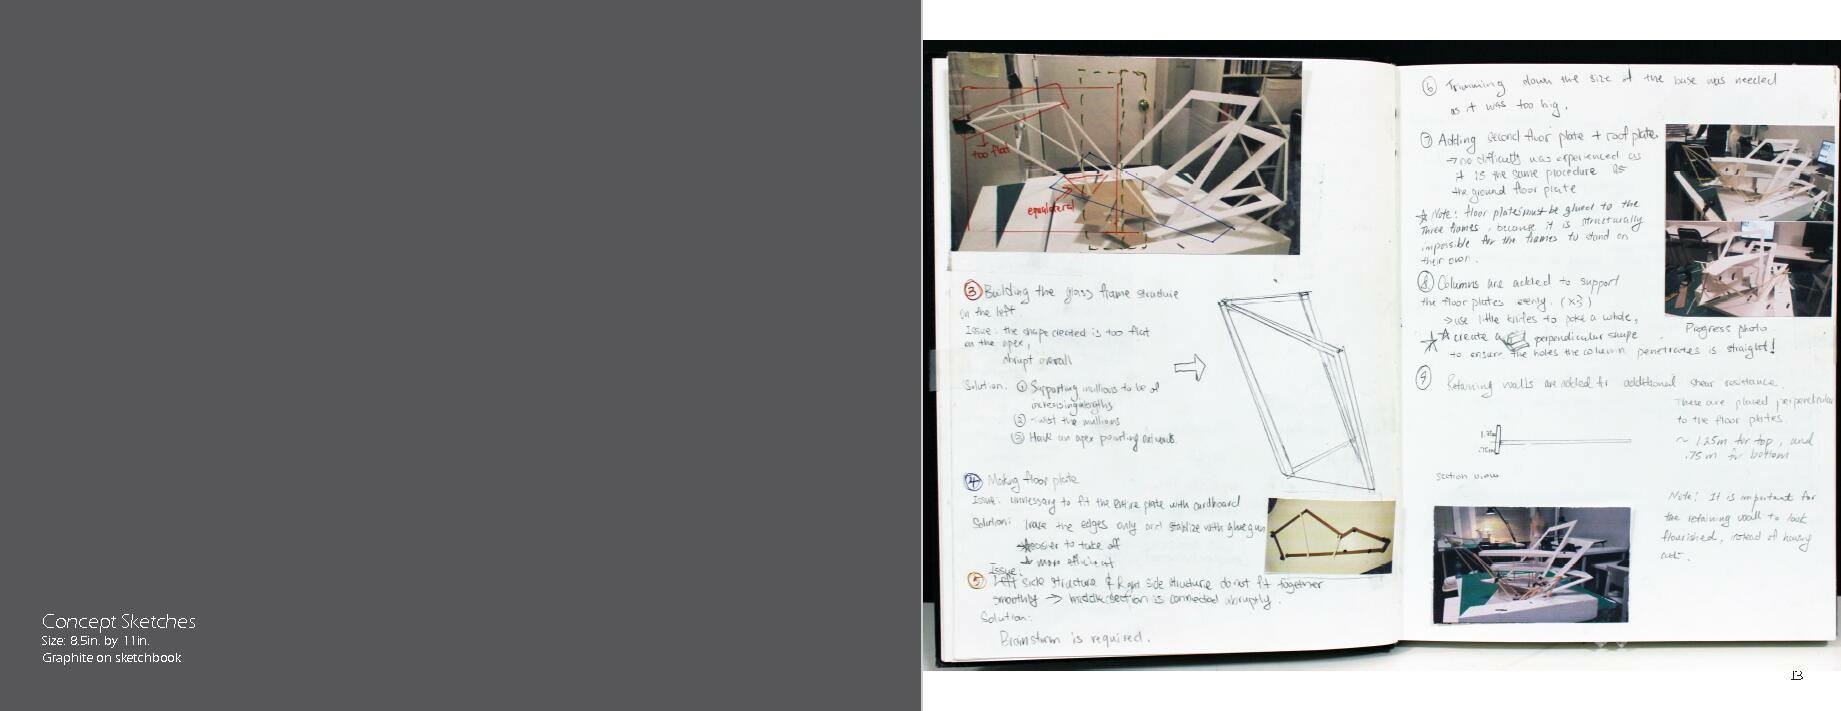 Concept Sketches
Size: 8.5in. by 11in.
Graphite on sketchbook
too flat
equilateral
③ Building the glass frame structure
on the left.
Issue: the shape created is too flat
on the apex,
abrupt overall
Solution: ① Supporting mullions to be of
increasing lengths
② twist the mullions
③ Have an apex pointing outwards.
④ Making floor plate
Issue: unnecessary to fit the entire plate with cardboard
Solution: Trace the edges only and stablize with glue gun
easier to take off
more efficient
Issue:
⑤ Left side structure & Right side structure do not fit together
smoothly → middle section is connected abruptly.
Solution:
Brainstorm is required.
⑥ Trimming down the size of the base was needed
as it was too big.
⑦ Adding second floor plate + roof plate.
→ no difficulty was experienced as
it is the same procedure as
the ground floor plate
☆ Note: floor plates must be glued to the
three frames, because it is structurally
impossible for the frames to stand on
their own.
⑧ Columns are added to support
the floor plates evenly. (x3)
→ use little knifes to poke a whole,
☆ ☆ create a perpendicular shape
to ensure the holes the column penetrates is straight!
Progress photo
⑨ Retaining walls are added for additional shear resistance.
These are placed perpendicular
to the floor plates.
~ 1.25m for top, and
.75m for bottom
1.25m
.75m
section view
Note! It is important for
the retaining wall to look
flourished, instead of
13